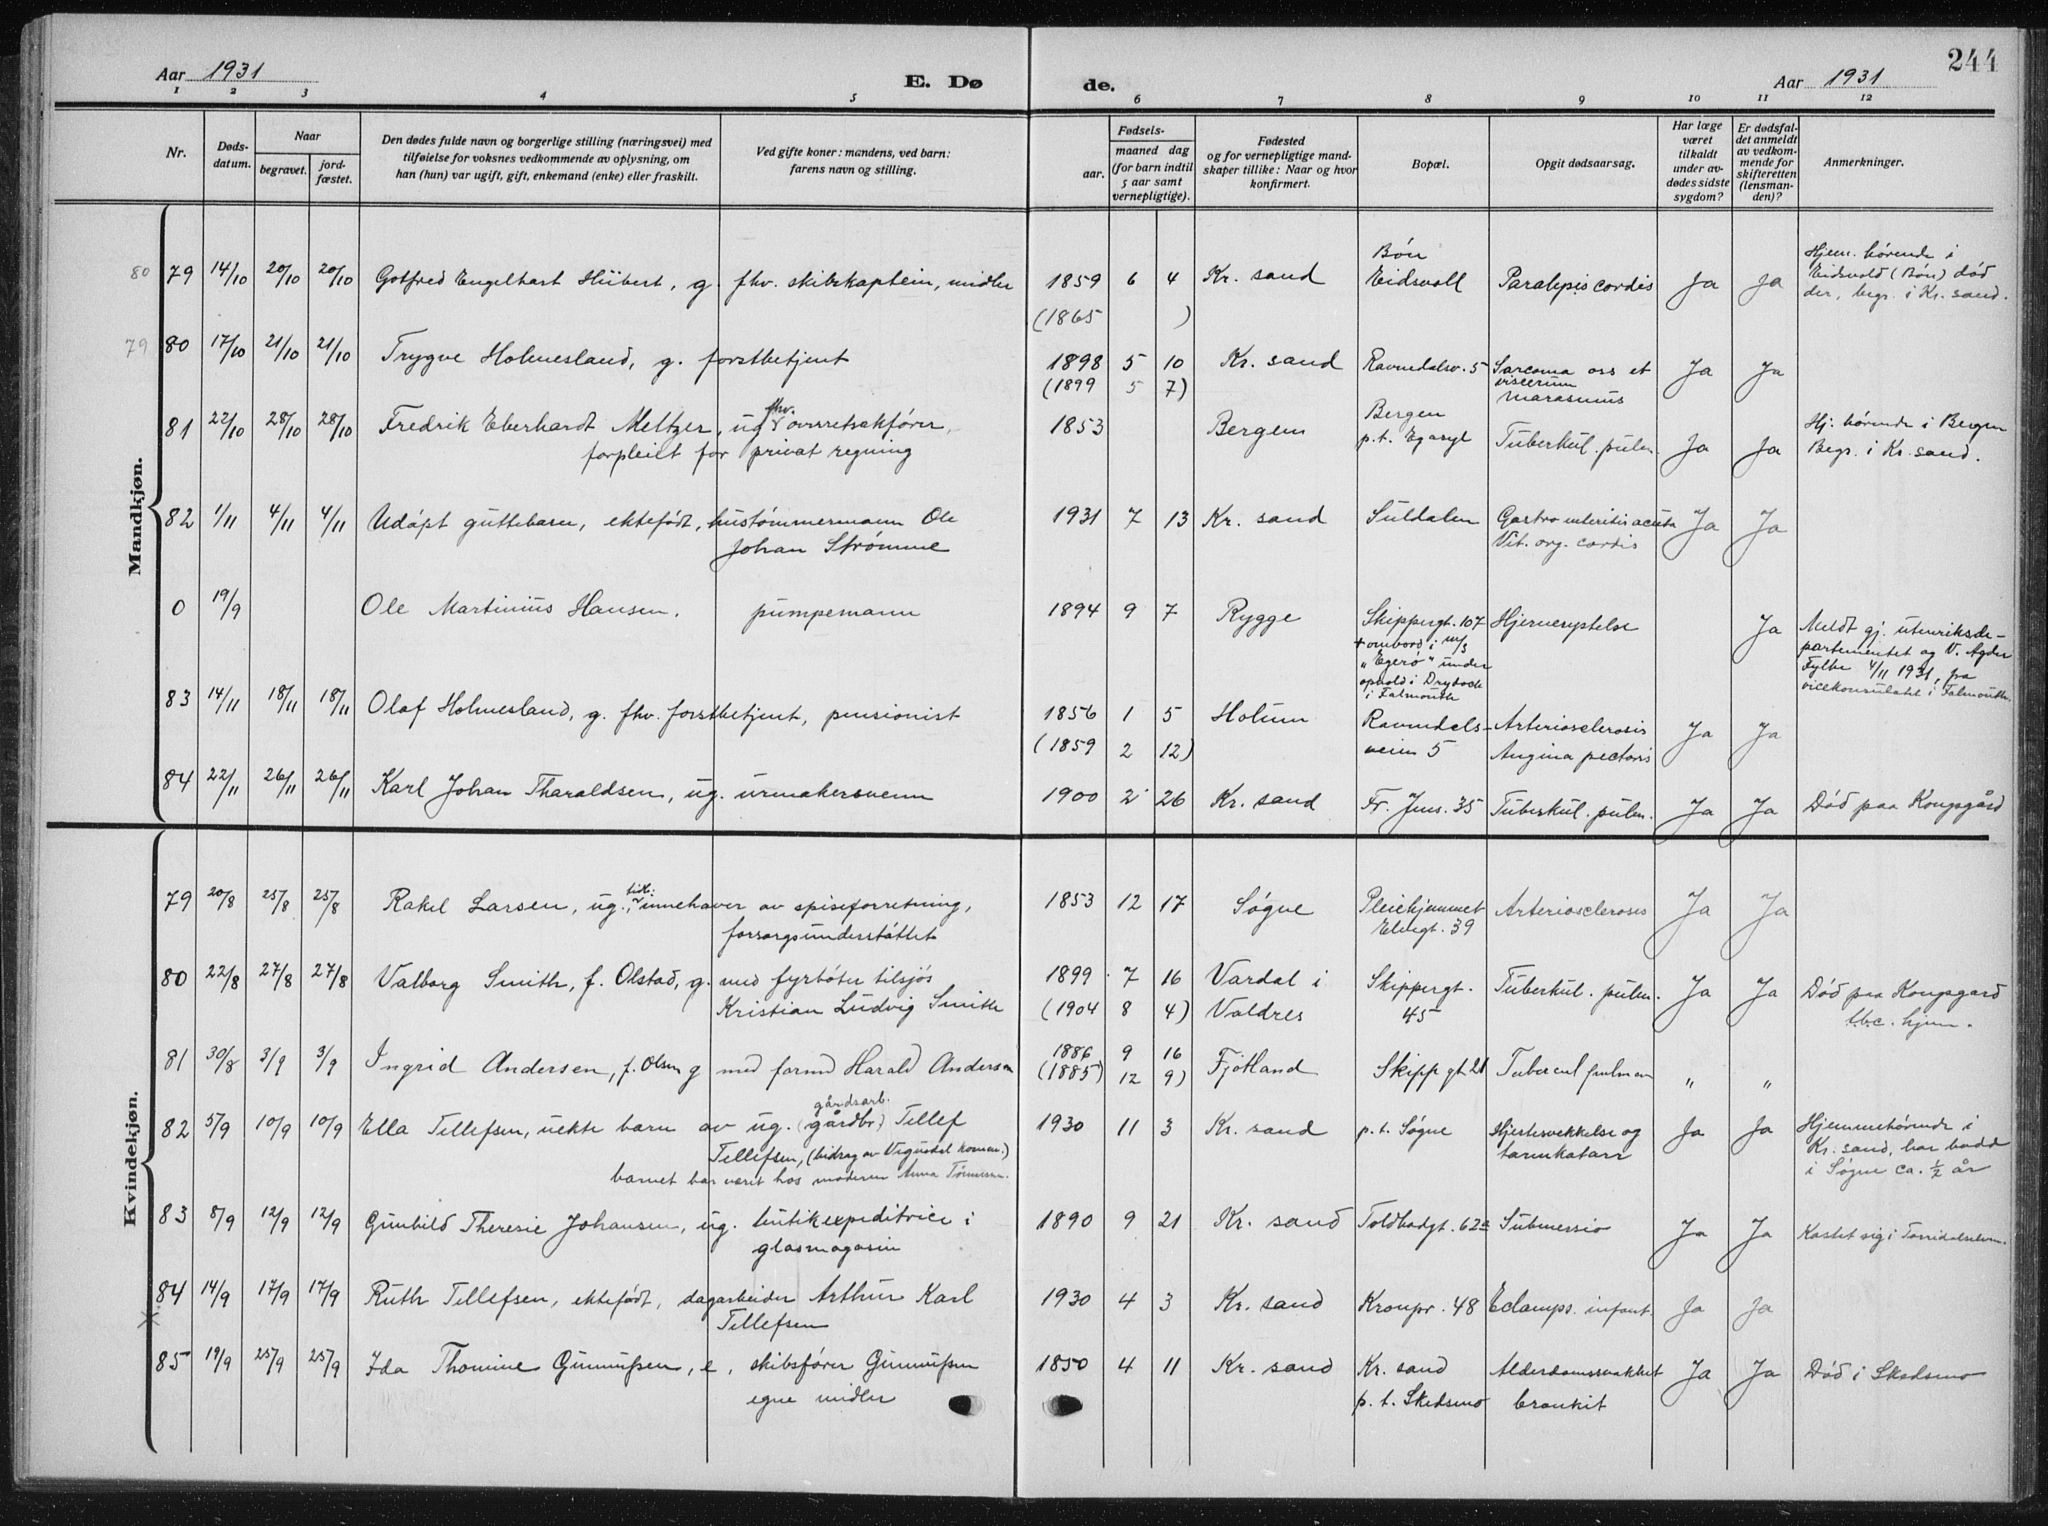 244
Aar 1931 E. Dø de. Aar 1931
1 2 3 4 5 6 7 8 9 10 11 12
Nr. Døds-datum. Naar begravet. jord-fæstet. Den dødes fulde navn og borgerlige stilling (næringsvei) med tilføielse for voksnes vedkommende av oplysning, om han (hun) var ugift, gift, enkemand (enke) eller fraskilt. Ved gifte koner: mandens, ved barn: farens navn og stilling. Fødsels- aar. maaned dag (for barn indtil 5 aar samt vernepligtige). Fødested og for vernepligtige mand-skaper tillike: Naar og hvor konfirmert. Bopæl. Opgit dødsaarsag. Har læge været tilkaldt under av-dødes sidste sygdom? Er dødsfal-det anmeldt av vedkom-mende for skifteretten (lensman-den)? Anmerkninger.
Mandkjøn.
80 79 14/10 20/10 20/10 Gotfred Engelhart Hübert, g. fhv. skibskaptein, midler 1859 6 4 Kr. sand Bøn Eidsvoll Paralysis cordis Ja Ja Hjem. hørende i Eidsvold (Bøn) død der, begr. i Kr. sand.
(1865 )
79 80 17/10 21/10 21/10 Trygve Holmesland, g. forstbetjent 1898 5 10 Kr. sand Ravnedalsv. 5 Sarcoma oss et viscerum marasmus Ja Ja
(1899 5 7)
81 22/10 28/10 28/10 Fredrik Eberhardt Meltzer, ug. fhv. overretsakfører, 1853 Bergen Bergen p.t. Egasyl Tuberkul. pulm. Ja Ja Hj. hørende i Bergen Begr. i Kr. sand.
forpleiet for privat regning
82 1/11 4/11 4/11 Udøpt guttebarn, ektefødt, hustømmermann Ole Johan Strømme 1931 7 13 Kr. sand Suldalen Gastro enteritis acuta Vit. org. cordis Ja Ja
0 19/9 Ole Martinius Hansen. pumpemann 1894 9 7 Rygge Skippergt. 107 + ombord i m/s "Egerø" under ophold i Drydock i Falmouth Hjernerystelse Ja Meldt gj. utenriksde-partementet og V. Agder Fylke 4/11 1931, fra vicekonsulatet i Falmouth.
83 14/11 18/11 18/11 Olaf Holmesland, g. fhv. forstbetjent, pensionist 1856 1 5 Holum Ravnedals-veien 5 Arteriosclerosis Angina pectoris Ja Ja
(1859 2 12)
84 22/11 26/11 26/11 Karl Johan Tharaldsen, ug. urmakersvenn 1900 2 26 Kr. sand Fr. Jens. 35 Tuberkul. pulm. Ja Ja Død paa Kongsgård
Kvindekjøn.
79 20/8 25/8 25/8 Rakel Larsen, ug., tidl. innehaver av spiseforretning, forsorgsunderstøttet 1853 12 17 Søgne Pleiehjemmet Elvegt. 39 Arteriosclerosis Ja Ja
80 22/8 27/8 27/8 Valborg Smith, f. Olstad, g. med fyrbøter tilsjøs Kristian Ludvig Smith 1899 7 16 Vardal i Valdres Skippergt. 45 Tuberkul. pulm. Ja Ja Død paa Kongsgard tbc. hjem.
(1904 8 4)
81 30/8 3/9 3/9 Ingrid Andersen, f. Olsen g med formd Harald Andersen 1886 9 16 Fjotland Skipp gt 21 Tubercul pulmon " "
(1885) 12 9)
82 5/9 10/9 10/9 Ella Tellefsen, uekte barn av ug. (gårdbr.) gårdsarb. Tellef Tellefsen, (bidrag av Vigusdal kommn.) 1930 11 3 Kr. sand p. t. Søgne Hjertesvekkelse og tarmkatarr Ja Ja Hjemmehørende i Kr. sand, har bodd i Søgne ca. ½ år
barnet har været hos moderen Anna Tønnesen.
83 8/9 12/9 12/9 Gunhild Theresie Johansen, ug. butikexpeditrice i glasmagasin 1890 9 21 Kr. sand Toldbodgt. 62a Submersio Ja Ja Kastet sig i Torridalselven.
84 14/9 17/9 17/9 Ruth Tellefsen, ektefødt, dagarbeider Arthur Karl Tellefsen 1930 4 3 Kr. sand Kronpr. 48 Eclamps. infant. Ja Ja
85 19/9 25/9 25/9 Ida Thomine Gunnufsen, e, skibsfører Gunnufsen egne midler 1850 4 11 Kr. sand Kr. sand p. t. Skedsmo Alderdomssvakhet bronkit Ja Ja Død i Skedsmo